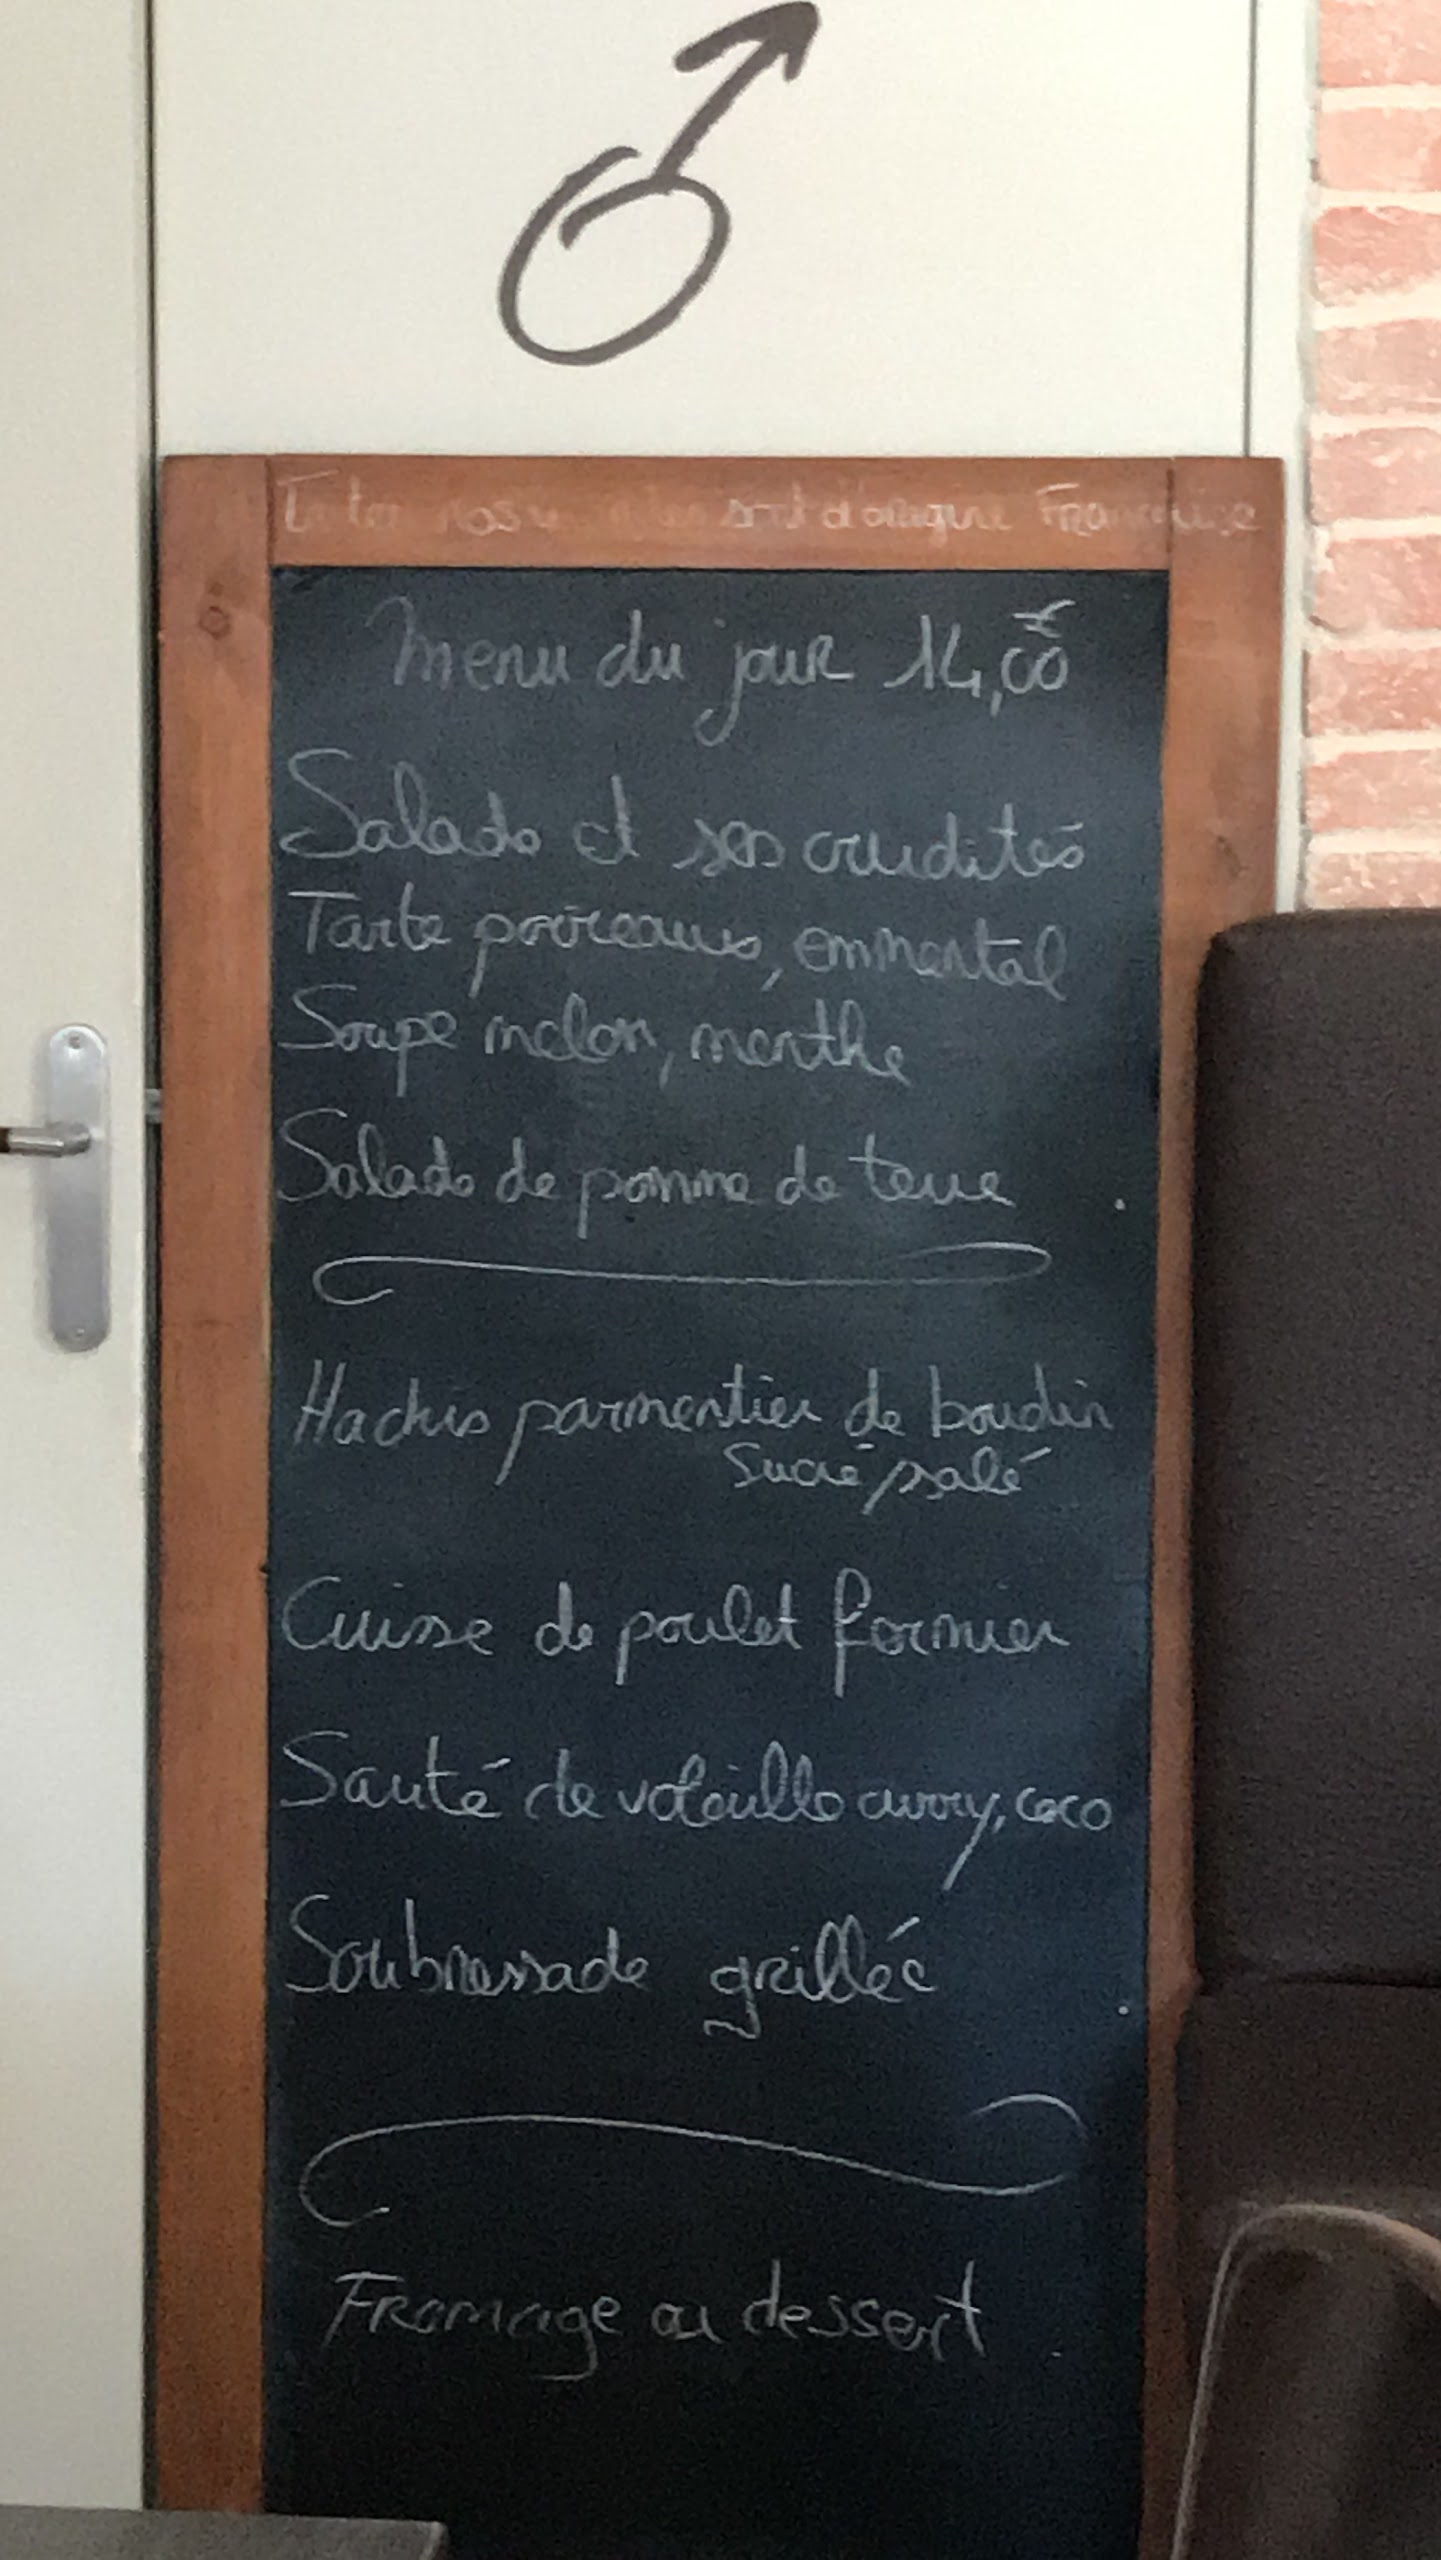 nos sont d'origine Française
Menu du jour 14,00 €
Salade et ses crudités
Tarte poireaux, emmental
Soupe melon, menthe
Salade de pomme de terre
Hachis parmentier de boudin
Sucré/salé
Cuisse de poulet fermier
Sauté de volaille curry, coco
Soubressade grillée
Fromage ou dessert